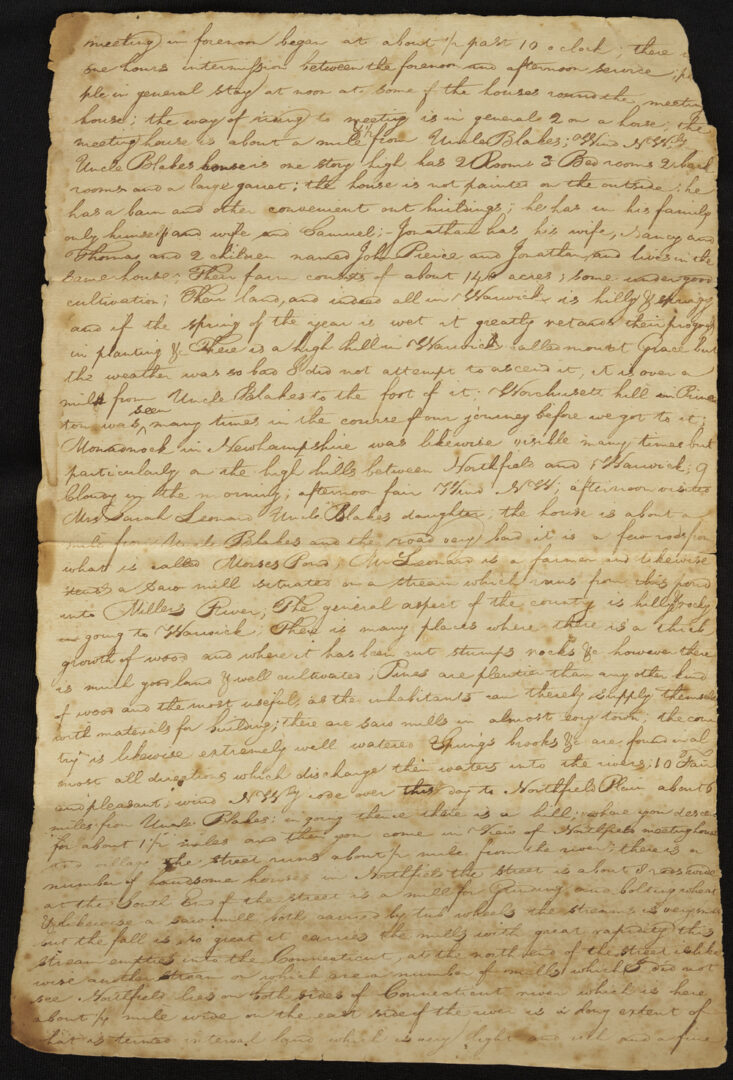 meeting in forenoon began at about 1/2 past 10 o clock; there
one hours intermission between the forenoon and afternoon service; p
ple in general stay at noon at some of the houses round the meeting
house; the way of riding to meeting is in general 2 on a horse; the
meeting house is about a mile from Uncle Blakes; Wind NWly
Uncle Blakes house is one story high has 2 Rooms 3 Bed rooms 2 back
rooms and a large garret; the house is not painted on the outside; he
has a barn and other convenient out buildings; he has in his family
only himself and wife and Samuel;- Jonathan has his wife, Nancy and
Thomas and 2 children named John Pierce and Jonathan, and lives in the
same house; Their farm consists of about 140 acres; some under good
cultivation; Their land, and indeed all in Warwick is hilly & springy
and if the spring of the year is wet it greatly retards their progress
in planting &c There is a high hill in Warwick called mount Grace but
the weather was so bad I did not attempt to ascend it, it is over a
mile from Uncle Blakes to the foot of it; Worchusett hill in Prince
ton was seen many times in the course of our journey before we got to it;
Monadnock in Newhampshire was likewise visible many times but
particularly on the high hills between Northfield and Warwick; 9
Cloudy in the morning; afternoon fair Wind NW; afternoon visited
Mrs Sarah Leonard Uncle Blakes daughter; the house is about a
mile from Uncle Blakes and the road very bad it is a few rods from
what is called Morses Pond; Mr Leonard is a farmer and likewise
a saw mill situated on a stream which runs from this pond
into Millers River; The general aspect of the country is hilly & rocky
in going to Warwick; There is many places where there is a thick
growth of wood and where it has been cut stumps rocks &c however there
is much good land & well cultivated; Pines are plentier than any other kind
of wood and the most useful, as the inhabitants can thereby supply themselves
with materials for building; there are saw mills in almost every town; the coun
try is likewise extremely well watered Springs brooks &c are found in al
most all directions which discharge their waters into the rivers; 10 Fair
and pleasant; wind NWly rode over this day to Northfield Plain about 6
miles from Uncle Blakes; in going thence there is a hill; where you descend
for about 1 1/2 miles and then you come in view of Northfield meeting house
and village the street runs about 1/2 mile from the river; there is a
number of handsome houses in Northfield the street is about 8 rods wide
at the South End of the street is a mill for Grinding and bolting wheat
& likewise a saw mill both carried by tub wheels the stream is very small
but the fall is so great it carries the mills with great rapidity this
stream empties into the Connecticut, at the north end of the street is like
wise another stream on which are a number of mills which I did not
see Northfield lies on both sides of Connecticut river which is here
about 1/4 mile wide on the east side of the river is a long extent of
what is termed interval land which is very light and rich and a fine